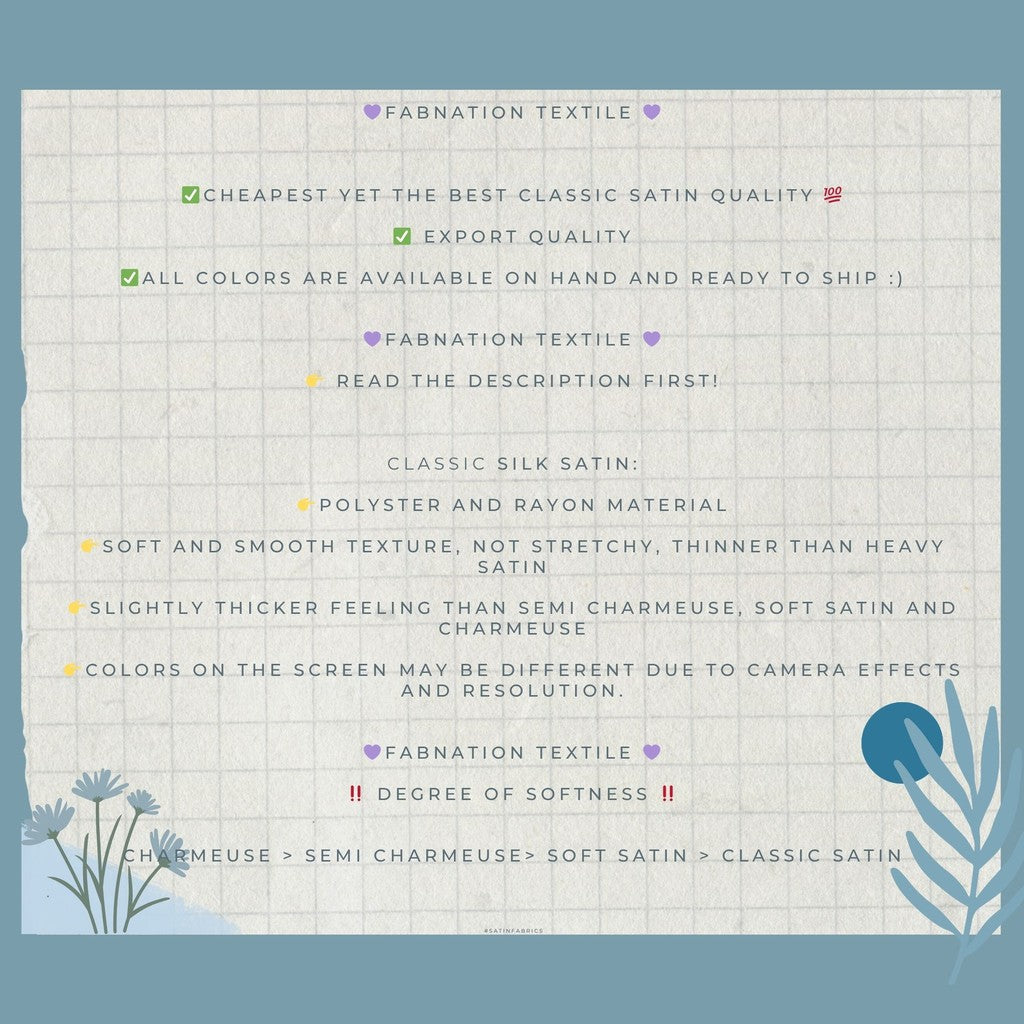 💜FABNATION TEXTILE 💜
✅CHEAPEST YET THE BEST CLASSIC SATIN QUALITY 💯
✅ EXPORT QUALITY
✅ALL COLORS ARE AVAILABLE ON HAND AND READY TO SHIP :)
💜FABNATION TEXTILE 💜
👉 READ THE DESCRIPTION FIRST!
CLASSIC SILK SATIN:
👉POLYSTER AND RAYON MATERIAL
👉SOFT AND SMOOTH TEXTURE, NOT STRETCHY, THINNER THAN HEAVY
SATIN
👉SLIGHTLY THICKER FEELING THAN SEMI CHARMEUSE, SOFT SATIN AND
CHARMEUSE
👉COLORS ON THE SCREEN MAY BE DIFFERENT DUE TO CAMERA EFFECTS
AND RESOLUTION.
💜FABNATION TEXTILE 💜
‼️ DEGREE OF SOFTNESS ‼️
CHARMEUSE > SEMI CHARMEUSE> SOFT SATIN > CLASSIC SATIN
#SATINFABRICS